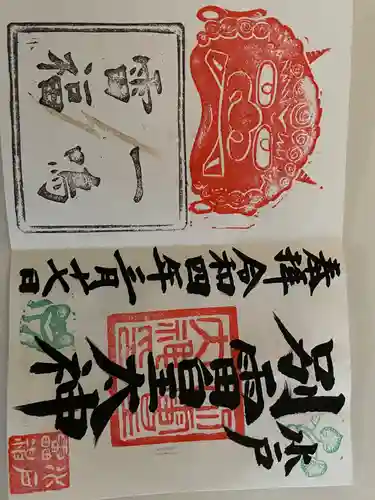 一鳴
雷福
水戸
別雷皇太神
奉拝 令和四年三月十七日